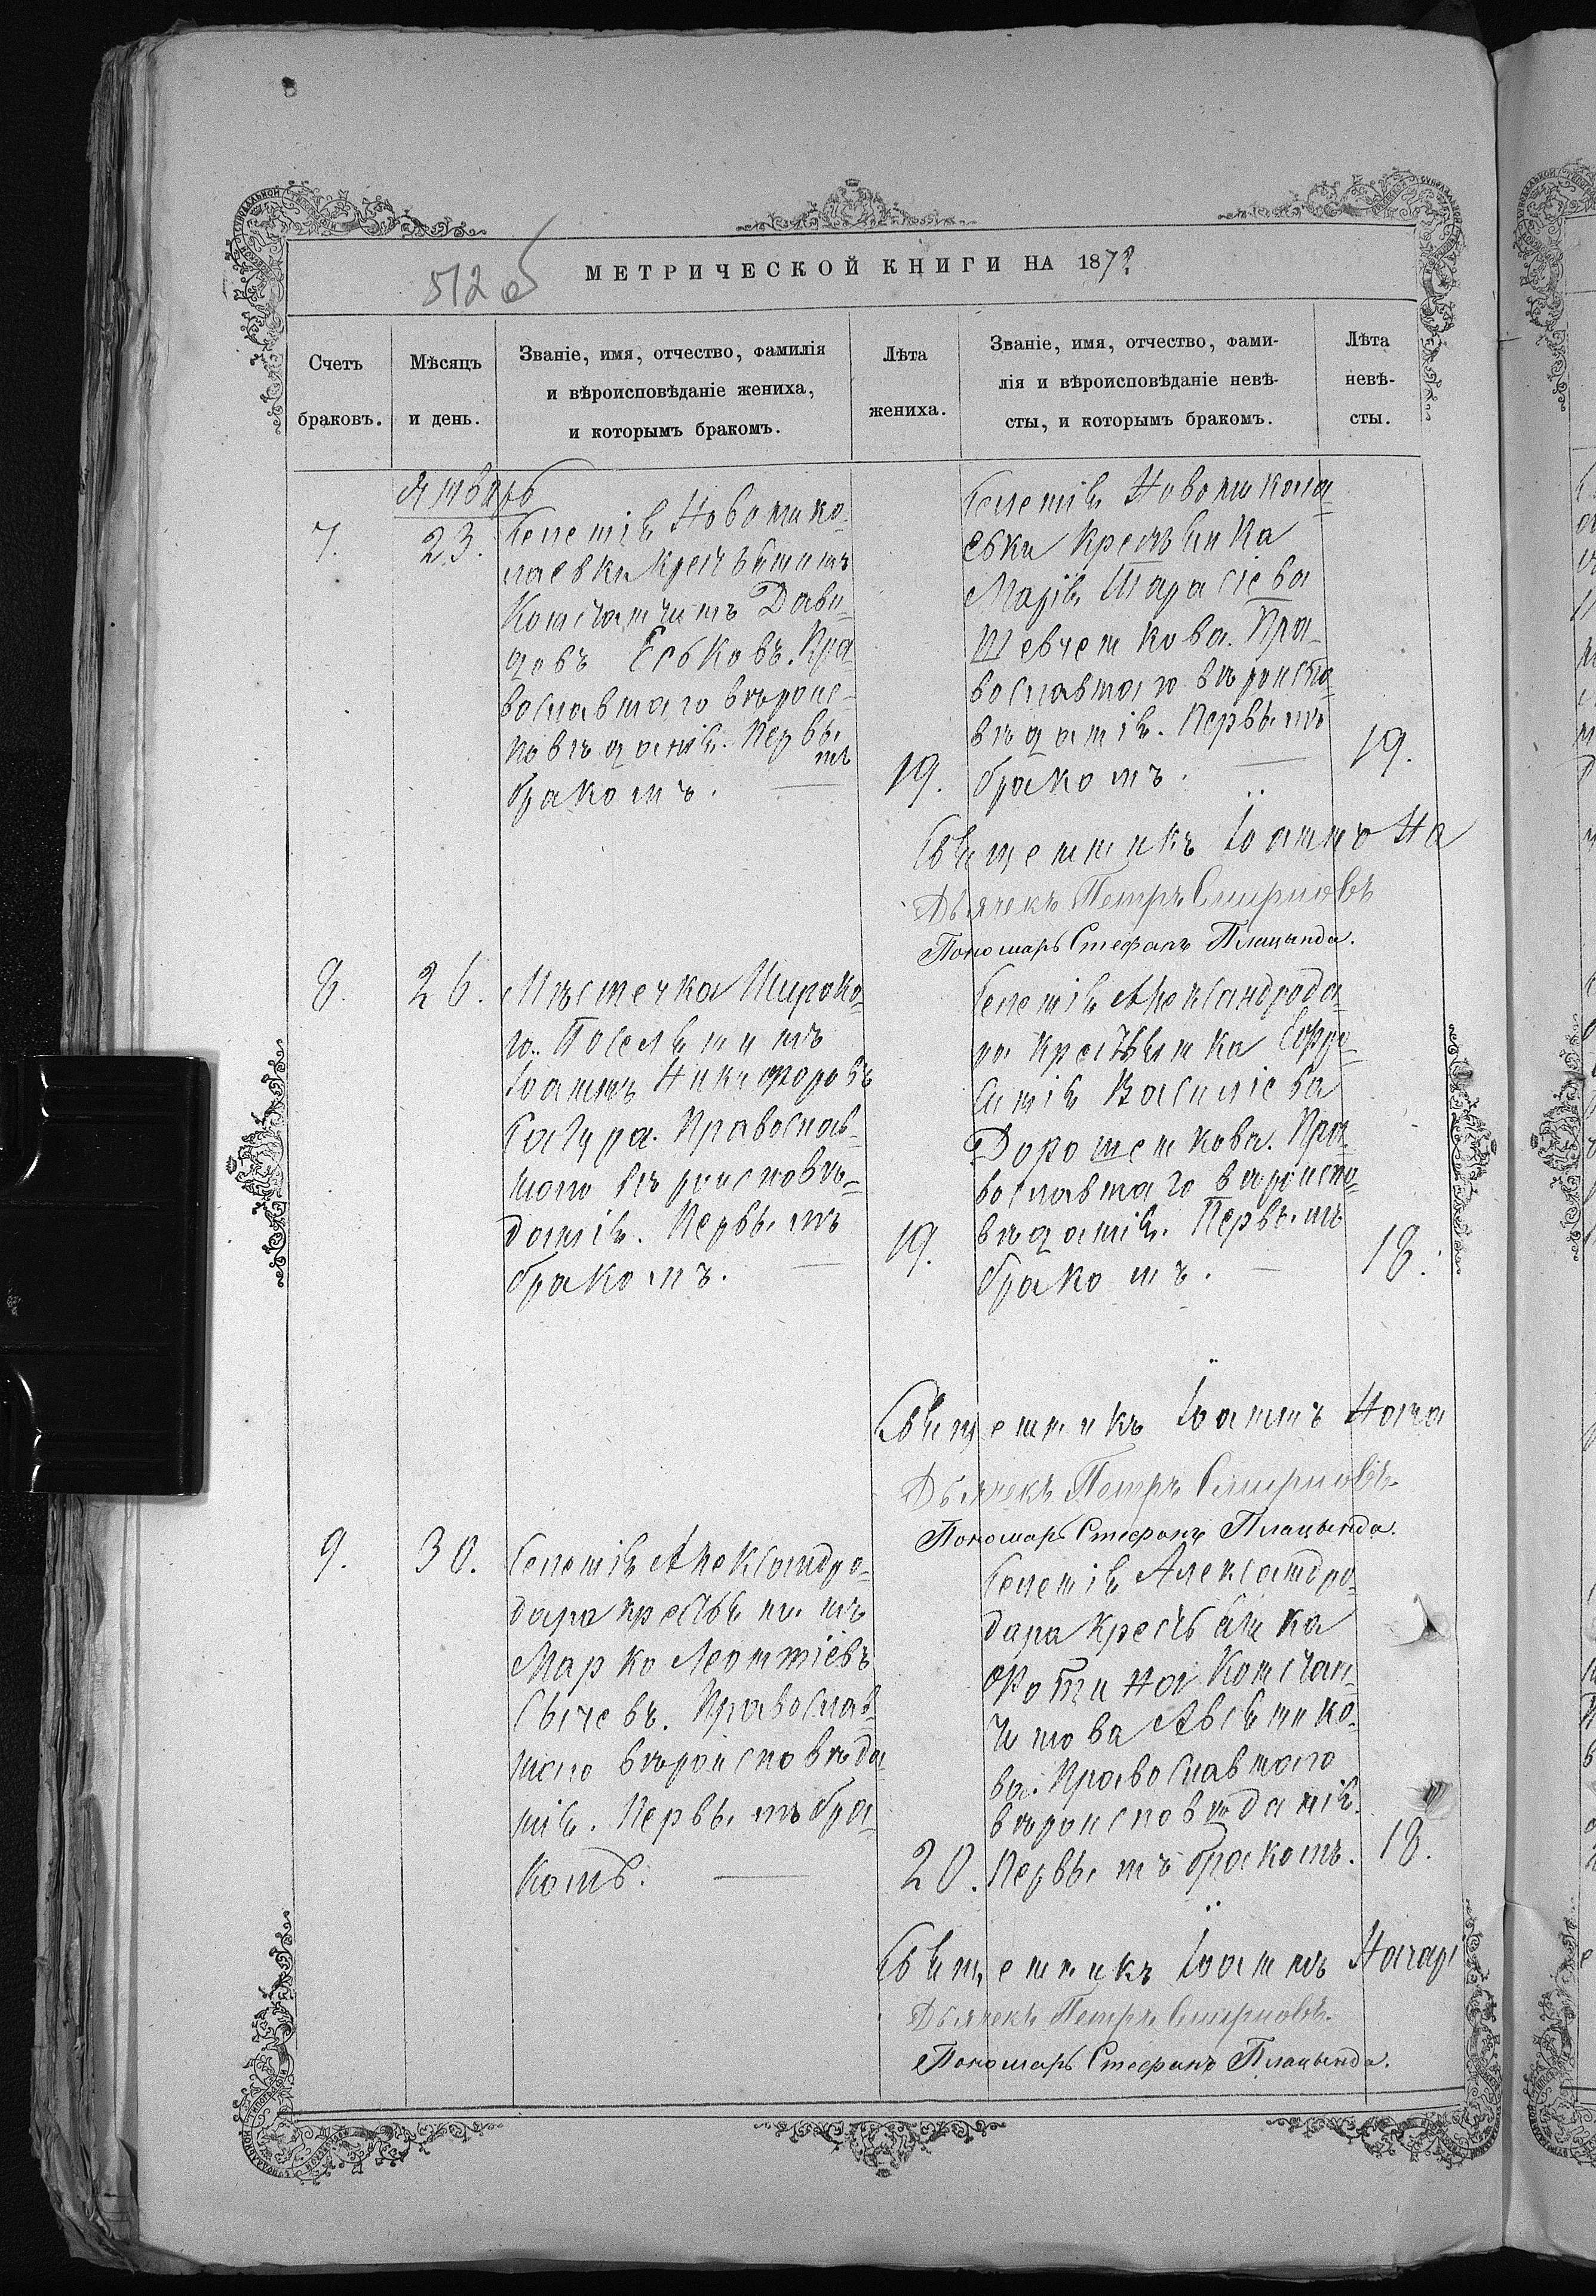 512 об
МЕТРИЧЕСКОЙ КНИГИ НА 187?
Счетъ браковъ.
Мѣсяцъ и день.
Званіе, имя, отчество, фамилія
и вѣроисповѣданіе жениха,
и которымъ бракомъ.
Лѣта жениха.
Званіе, имя, отчество, фами-
лія и вѣроисповѣданіе невѣ-
сты, и которымъ бракомъ.
Лѣта невѣ-
сты.
Январь
7.
23.
Селенія Новонико-
лаевки крестьянинъ
Константинъ Дави-
довъ Еськовъ. Пра-
вославнаго вѣроис-
повѣданія. Первы
мъ
бракомъ.
19.
Селенія Новоникола-
евки крестьянка
Марія Тарасіева
Шевченкова. Пра-
вославнаго вѣроиспо-
вѣданія. Первымъ
бракомъ.
19.
Священникъ Іоаннъ На
Дьячекъ Петръ Смирновъ
Пономарь Стефанъ Плацында.
8.
26.
Мѣстечка Широко-
го Поселянинъ
Іоаннъ Никифоровъ
Сацура. Православ-
наго вѣроисповѣ-
данія. Первымъ
бракомъ.
19.
Селенія Александрода-
ра крестьянка Ефро-
синія Василіева
Дорошенкова. Пра-
вославнаго вѣроиспо-
вѣданія. Первымъ
бракомъ.
18.
Священникъ Іоаннъ Нага
Дьячекъ Петръ Смирновъ.
Пономарь Стефанъ Плацында.
9.
30.
Селенія Александро-
дара крестьянинъ
Марко Леонтіевъ
Сычевъ. Православ-
наго вѣроисповѣда
нія. Первымъ бра-
комъ.
20.
Селенія Александро-
дара крестьянка
Фотина Констан-
тинова Авсянико-
ва. Православнаго
вѣроисповѣданія.
Первымъ бракомъ.
18.
Священникъ Іоаннъ Нагар
Дьячекъ Петръ Смирновъ.
Пономарь Стефанъ Плацында.